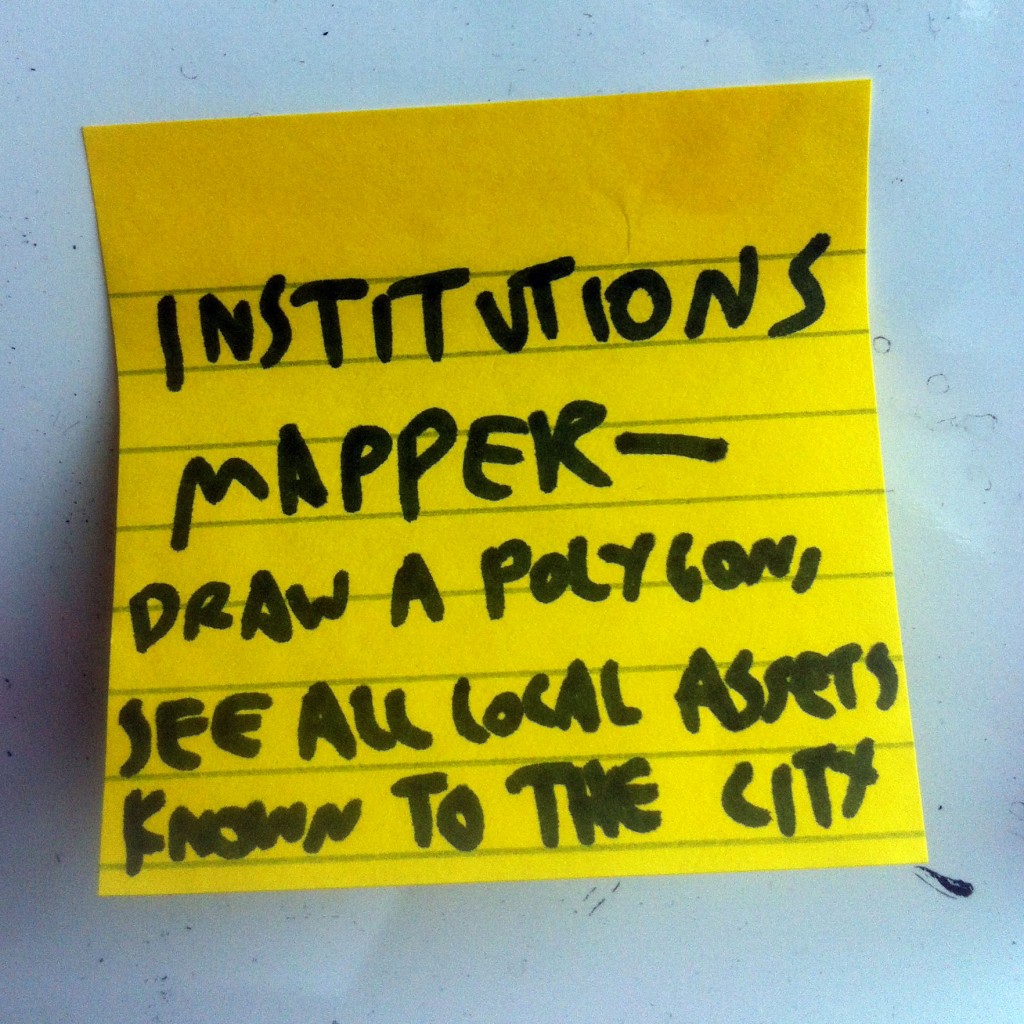 INSTITUTIONS
MAPPER—
DRAW A POLYGON,
SEE ALL LOCAL ASSETS
KNOWN TO THE CITY